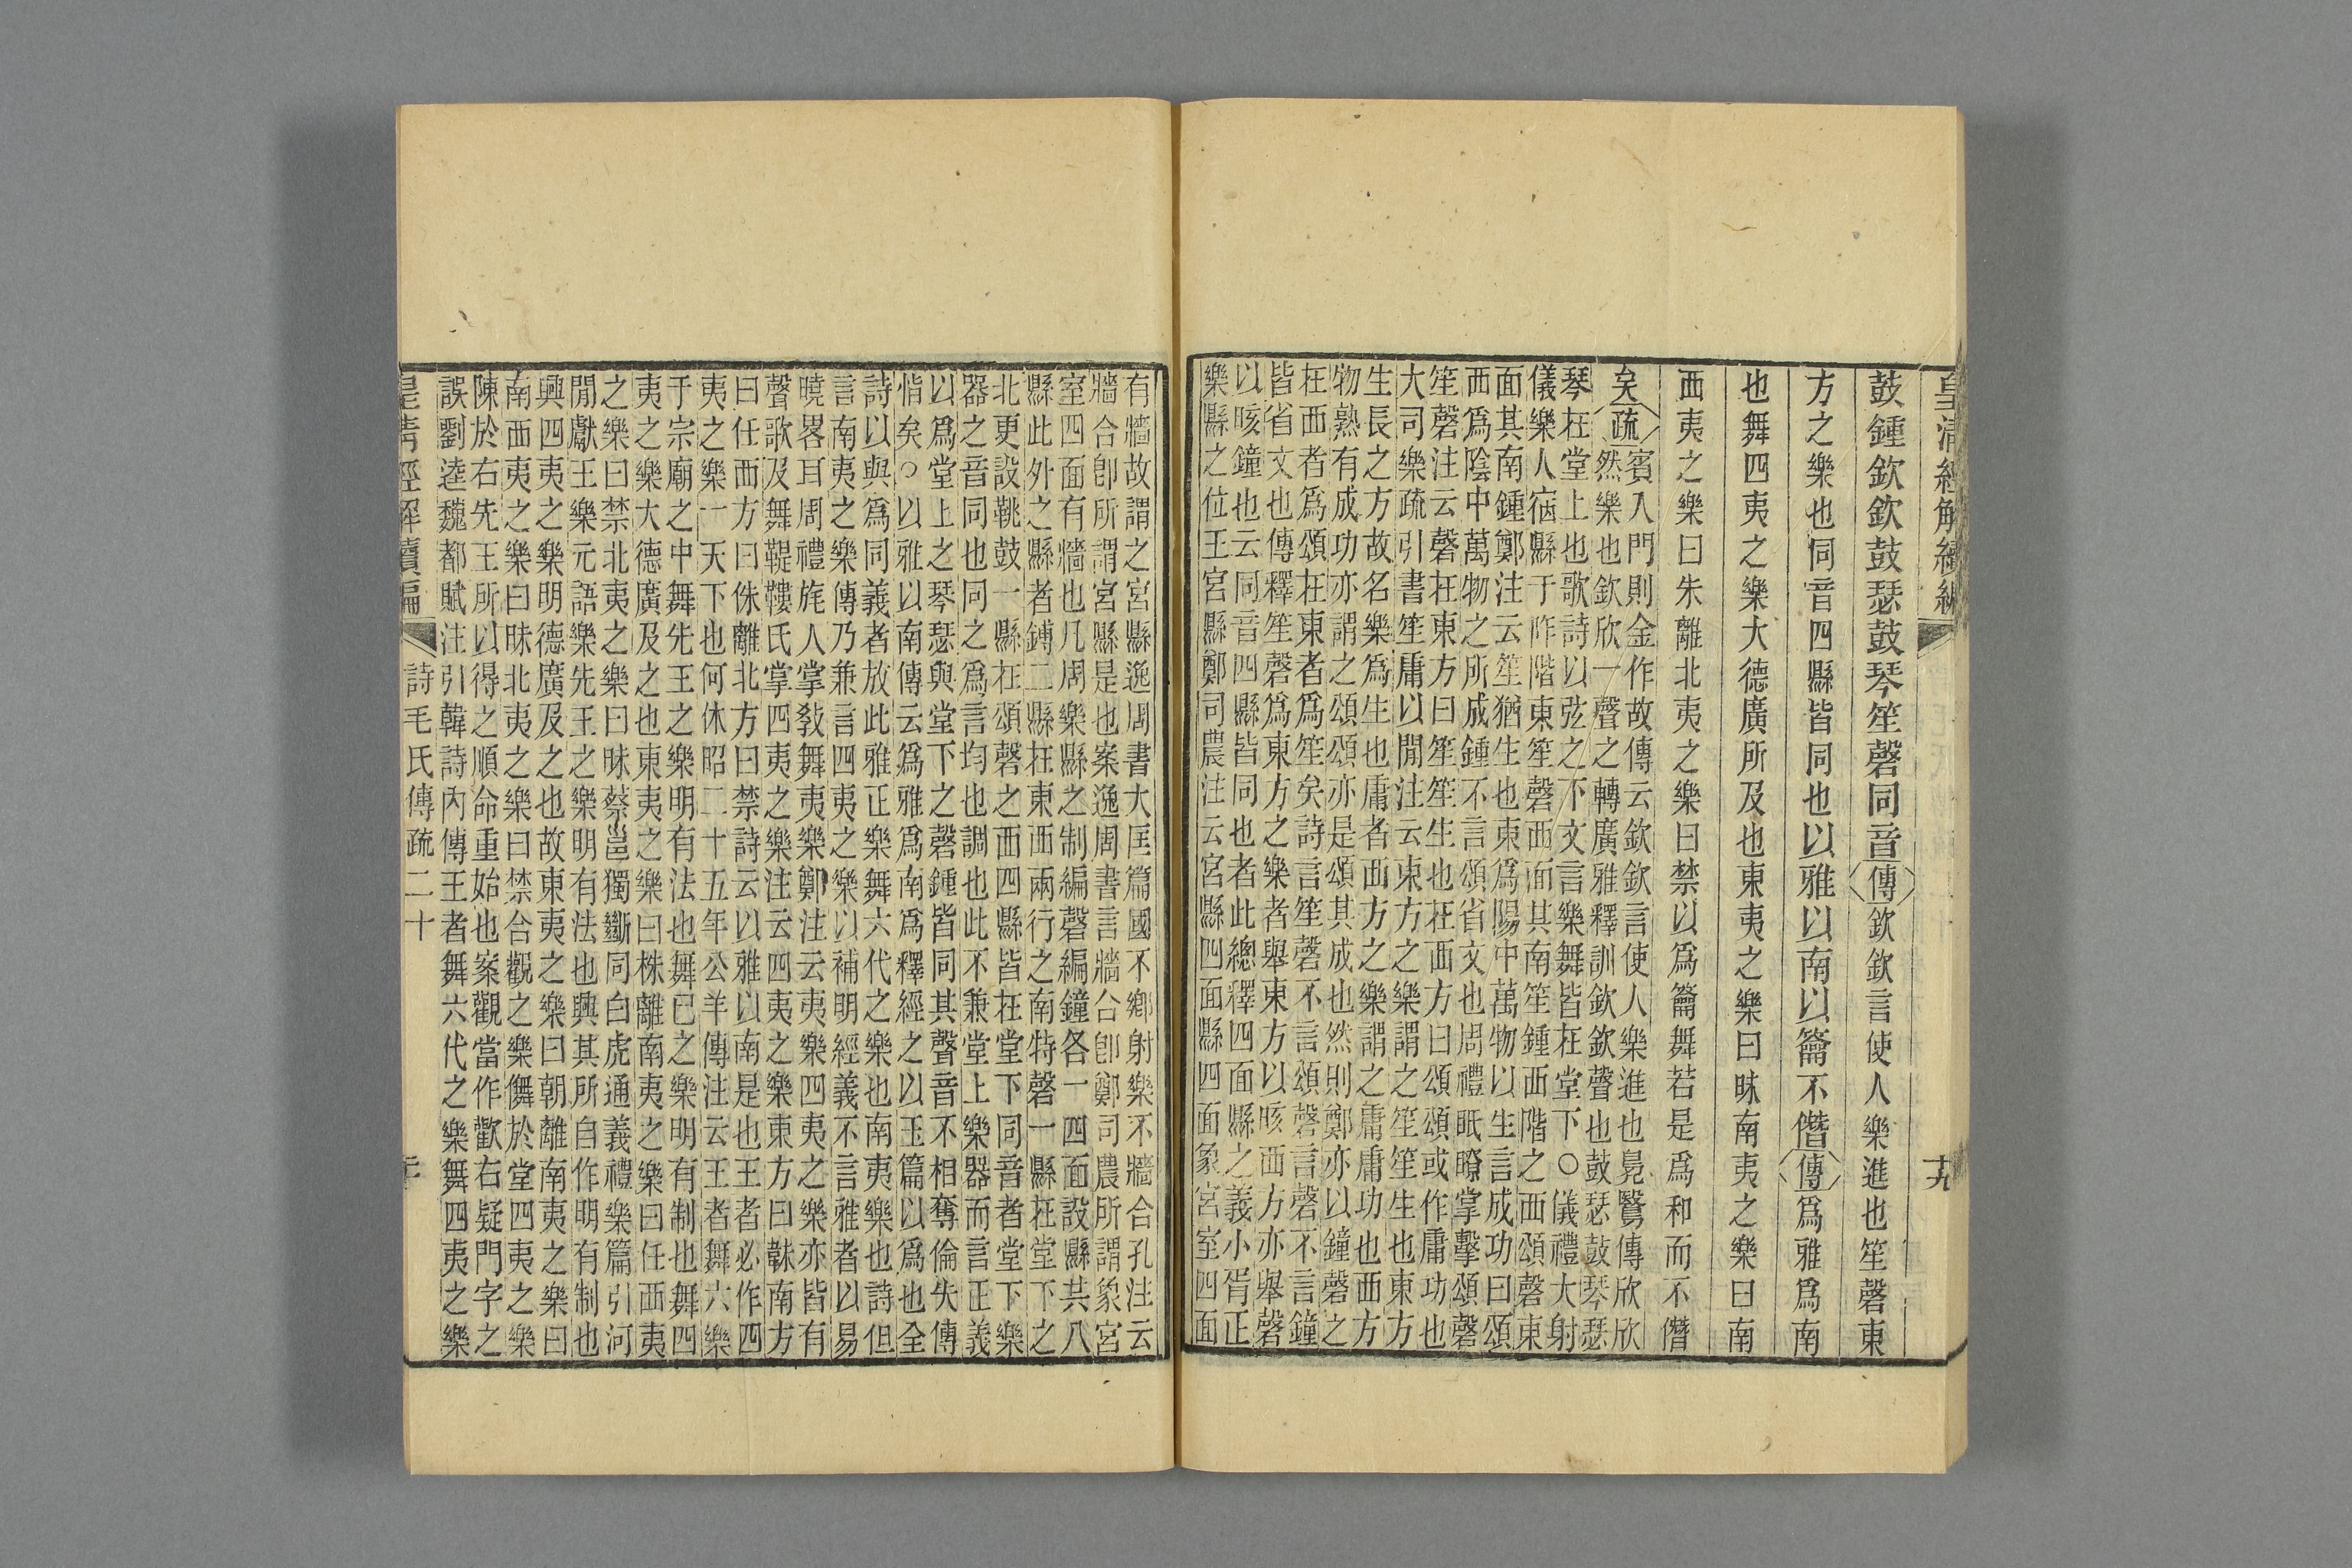 皇清經解續編 十九
鼓鍾欽欽鼓瑟鼓琴笙磬同音傳欽欽言使人樂進也笙磬東
方之樂也同音四縣皆同也以雅以南以籥不僭傳爲雅爲南
也舞四夷之樂大德廣所及也東夷之樂曰昧南夷之樂曰南
西夷之樂曰朱離北夷之樂曰禁以爲籥舞若是爲和而不僭
矣疏賓入門則金作故傳云欽欽言使人樂進也鳧鷖傳欣欣
然樂也欽欣一聲之轉廣雅釋訓欽欽聲也鼓瑟鼓琴瑟
琴在堂上也歌詩以弦之不文言樂舞皆在堂下○儀禮大射
儀樂人宿縣于阼階東笙磬西面其南笙鍾西階之西頌磬東
面其南鍾鄭注云笙猶生也東爲陽中萬物以生言成功曰頌
西爲陰中萬物之所成鍾不言頌省文也周禮眡瞭掌擊頌磬
笙磬注云磬在東方曰笙笙生也在西方曰頌頌或作庸功也
大司樂疏引書笙庸以閒注云東方之樂謂之笙笙生也東方
生長之方故名樂爲生也庸者西方之樂謂之庸庸功也西方
物熟有成功亦謂之頌頌亦是頌其成也然則鄭亦以鐘磬之
在西者爲頌在東者爲笙矣詩言笙磬不言頌磬言磬不言鐘
皆省文也傳釋笙磬爲東方之樂者舉東方以晐西方亦舉磬
以晐鐘也云同音四縣皆同也者此總釋四面縣之義小胥正
樂縣之位王宮縣鄭司農注云宮縣四面縣四面象宮室四面
有牆故謂之宮縣逸周書大匡篇國不鄉射樂不牆合孔注云
牆合卽所謂宮縣是也案逸周書言牆合卽鄭司農所謂象宮
室四面有牆也凡周樂縣之制編磬編鐘各一四面設縣共八
縣此外之縣者鎛二縣在東西兩行之南特磬一縣在堂下之
北更設鼗鼓一縣在頌磬之西四縣皆在堂下同音者堂下樂
器之音同也同之爲言均也調也此不兼堂上樂器而言正義
以爲堂上之琴瑟與堂下之磬鍾皆同其聲音不相奪倫失傳
恉矣○以雅以南傳云爲雅爲南爲釋經之以玉篇以爲也全
詩以與爲同義者放此雅正樂舞六代之樂也南夷樂也詩但
言南夷之樂傳乃兼言四夷之樂以補明經義不言雅者以易
曉畧耳周禮旄人掌敎舞夷樂鄭注云夷樂四夷之樂亦皆有
聲歌及舞鞮鞻氏掌四夷之樂注云四夷之樂東方曰韎南方
曰任西方曰侏離北方曰禁詩云以雅以南是也王者必作四
夷之樂一天下也何休昭二十五年公羊傳注云王者舞六樂
于宗廟之中舞先王之樂明有法也舞已之樂明有制也舞四
夷之樂大德廣及之也東夷之樂曰株離南夷之樂曰任西夷
之樂曰禁北夷之樂曰昧蔡邕獨斷同白虎通義禮樂篇引河
閒獻王樂元語樂先王之樂明有法也興其所自作明有制也
興四夷之樂明德廣及之也故東夷之樂曰朝離南夷之樂曰
南西夷之樂曰昧北夷之樂曰禁合觀之樂儛於堂四夷之樂
陳於右先王所以得之順命重始也案觀當作歡右疑門字之
誤劉逵魏都賦注引韓詩內傳王者舞六代之樂舞四夷之樂
皇清經解續編 詩毛氏傳疏二十